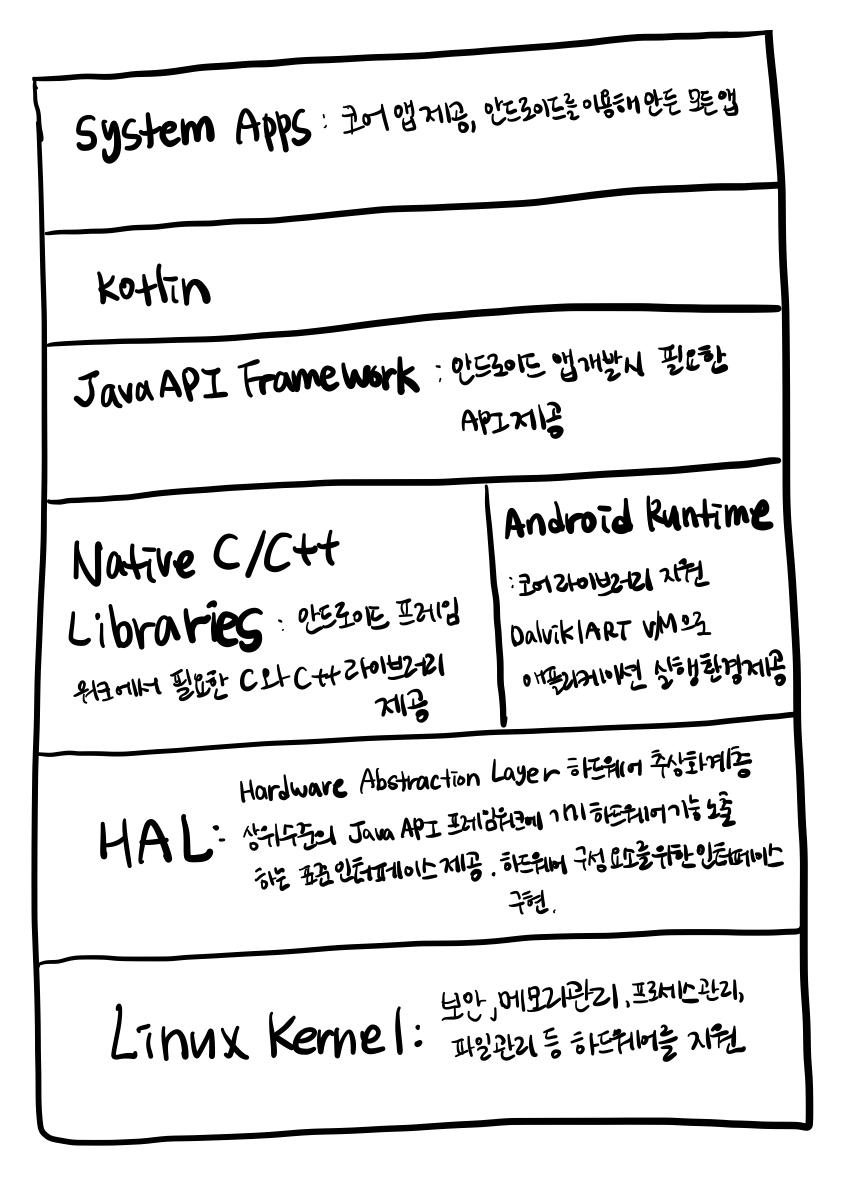 System Apps : 코어 앱 제공, 안드로이드를 이용해 만든 모든 앱
Kotlin
Java API Framework : 안드로이드 앱 개발시 필요한
API 제공
Native C/C++
Libraries : 안드로이드 프레임
워크에서 필요한 C와 C++ 라이브러리
제공
Android Runtime
: 코어 라이브러리 지원
Dalvik/ART VM으로
애플리케이션 실행환경제공
Hardware Abstraction Layer 하드웨어 추상화계층
HAL: 상위수준의 Java API 프레임워크에 기기 하드웨어 기능 노출
하는 표준 인터페이스 제공. 하드웨어 구성 요소를 위한 인터페이스
구현.
Linux Kernel: 보안, 메모리관리, 프로세스관리,
파일관리 등 하드웨어를 지원